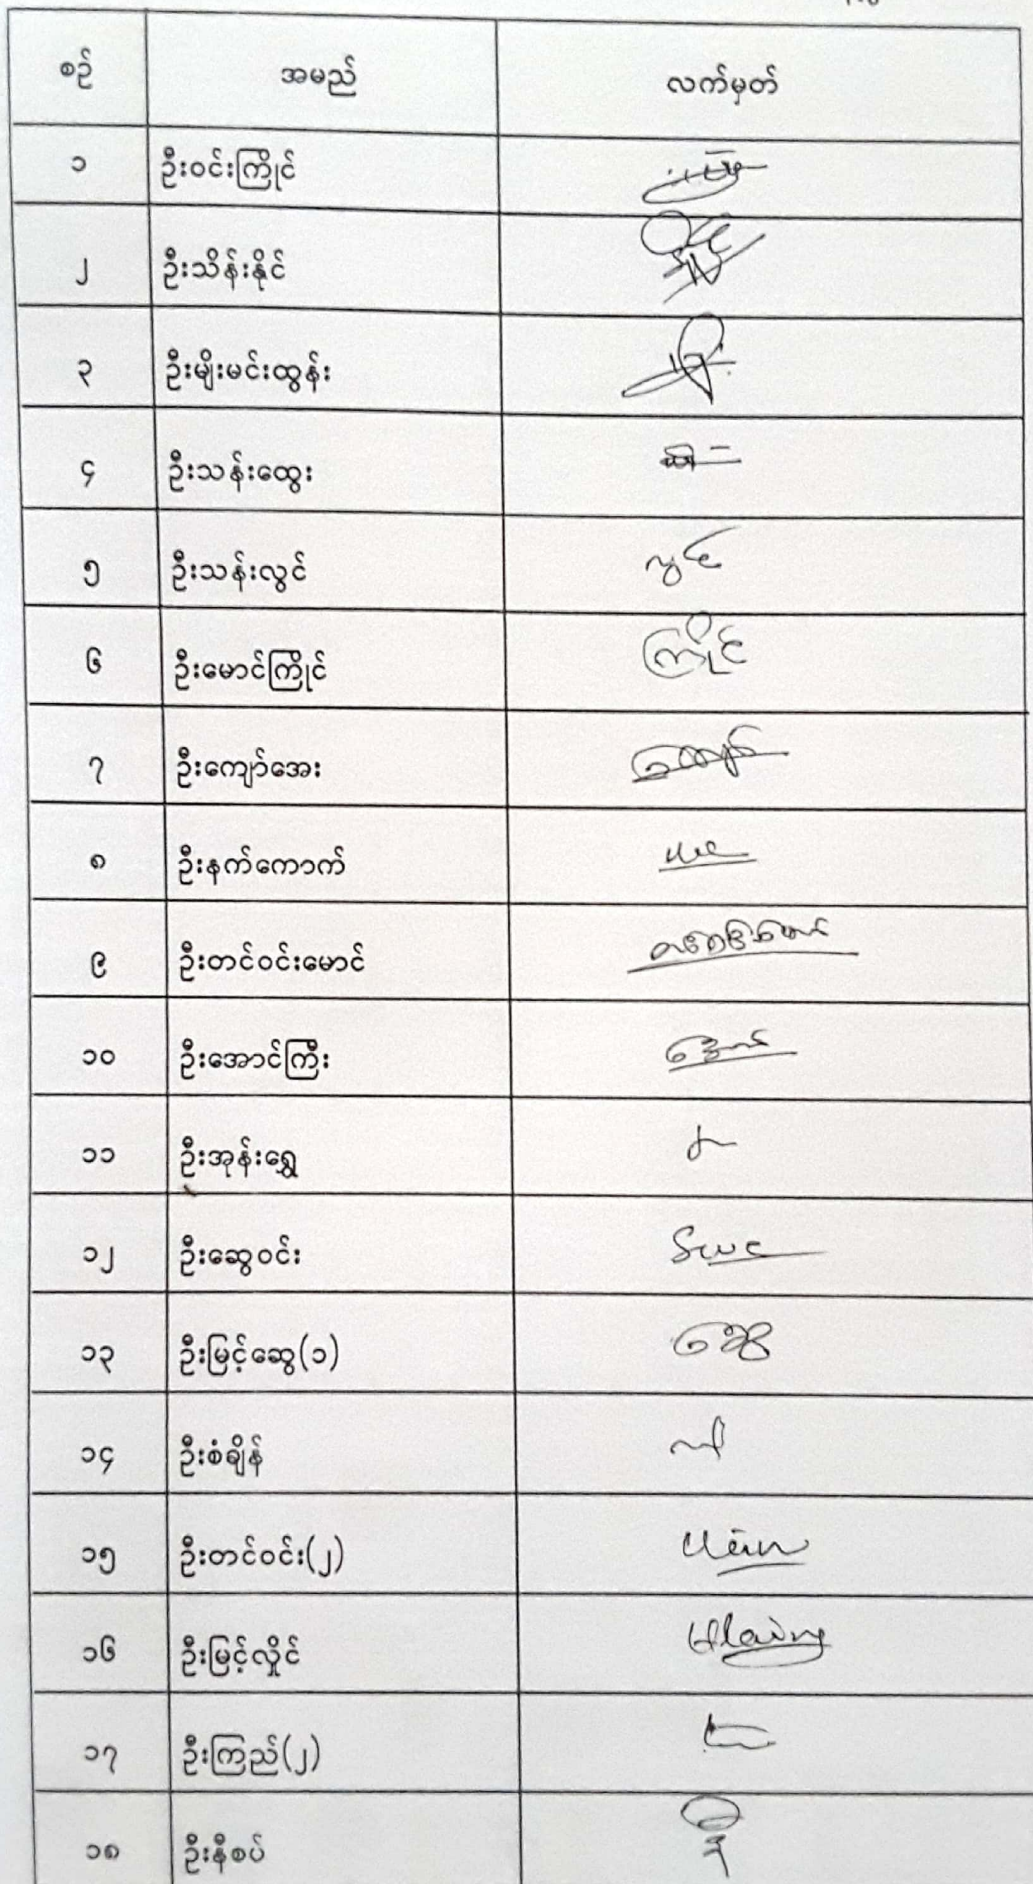 စဉ် အမည် လက်မှတ်
၁ ဦးဝင်းကြိုင်
၂ ဦးသိန်းနိုင်
၃ ဦးမျိုးမင်းထွန်း
၄ ဦးသန်းထွေး
၅ ဦးသန်းလွင် လွင်
၆ ဦးမောင်ကြိုင် ကြိုင်
၇ ဦးကျော်အေး ကျော်
၈ ဦးနက်ကောက်
၉ ဦးတင်ဝင်းမောင် တင်ဝင်းမောင်
၁၀ ဦးအောင်ကြီး အောင်
၁၁ ဦးအုန်းရွှေ
၁၂ ဦးဆွေဝင်း
၁၃ ဦးမြင့်ဆွေ(၁) ဆွေ
၁၄ ဦးစံချိန်
၁၅ ဦးတင်ဝင်း(၂)
၁၆ ဦးမြင့်လှိုင် Hlaing
၁၇ ဦးကြည်(၂)
၁၈ ဦးနီစပ်